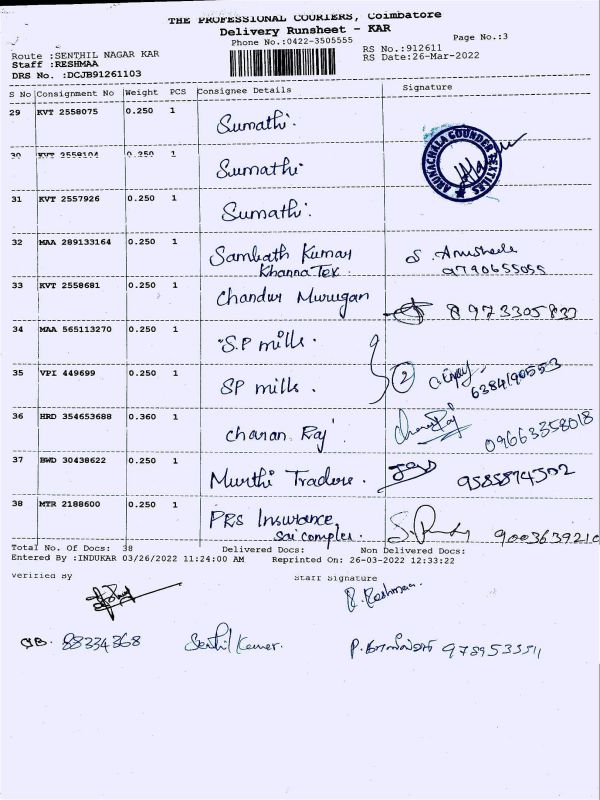 THE PROFESSIONAL COURIERS, Coimbatore
Delivery Runsheet - KAR
Phone No.:0422-3505555 Page No.:3
Route :SENTHIL NAGAR KAR RS No.:912611
Staff :RESHMAA RS Date:26-Mar-2022
DRS No. :DCJB91261103
S No Consignment No Weight PCS Consignee Details Signature
29 KVT 2558075 0.250 1 Sumathi.
ARUNACHALA GOUNDER TEXTILES
30 KVT 2558104 0.250 1 Sumathi
31 KVT 2557926 0.250 1 Sumathi.
32 MAA 289133164 0.250 1 Sambath Kumar S. Anusheela
Khanna Tex. 9790655055
33 KVT 2558681 0.250 1 Chandur Murugan 8973305837
34 MAA 565113270 0.250 1 S.P mills.
35 VPI 449699 0.250 1 SP mills. 2 6384190553
36 HRD 354653688 0.360 1 Charan Raj 09663358018
37 BWD 30438622 0.250 1 Murthi Traders. 9585874502
38 MTR 2188600 0.250 1 PRS Insurance,
Sai complex. 9003639210
Total No. Of Docs: 38 Delivered Docs: Non Delivered Docs:
Entered By :INDUKAR 03/26/2022 11:24:00 AM Reprinted On: 26-03-2022 12:33:22
Verified By Staff Signature
R. Reshmaa.
88334368 Senthil Kumar. 9789533511